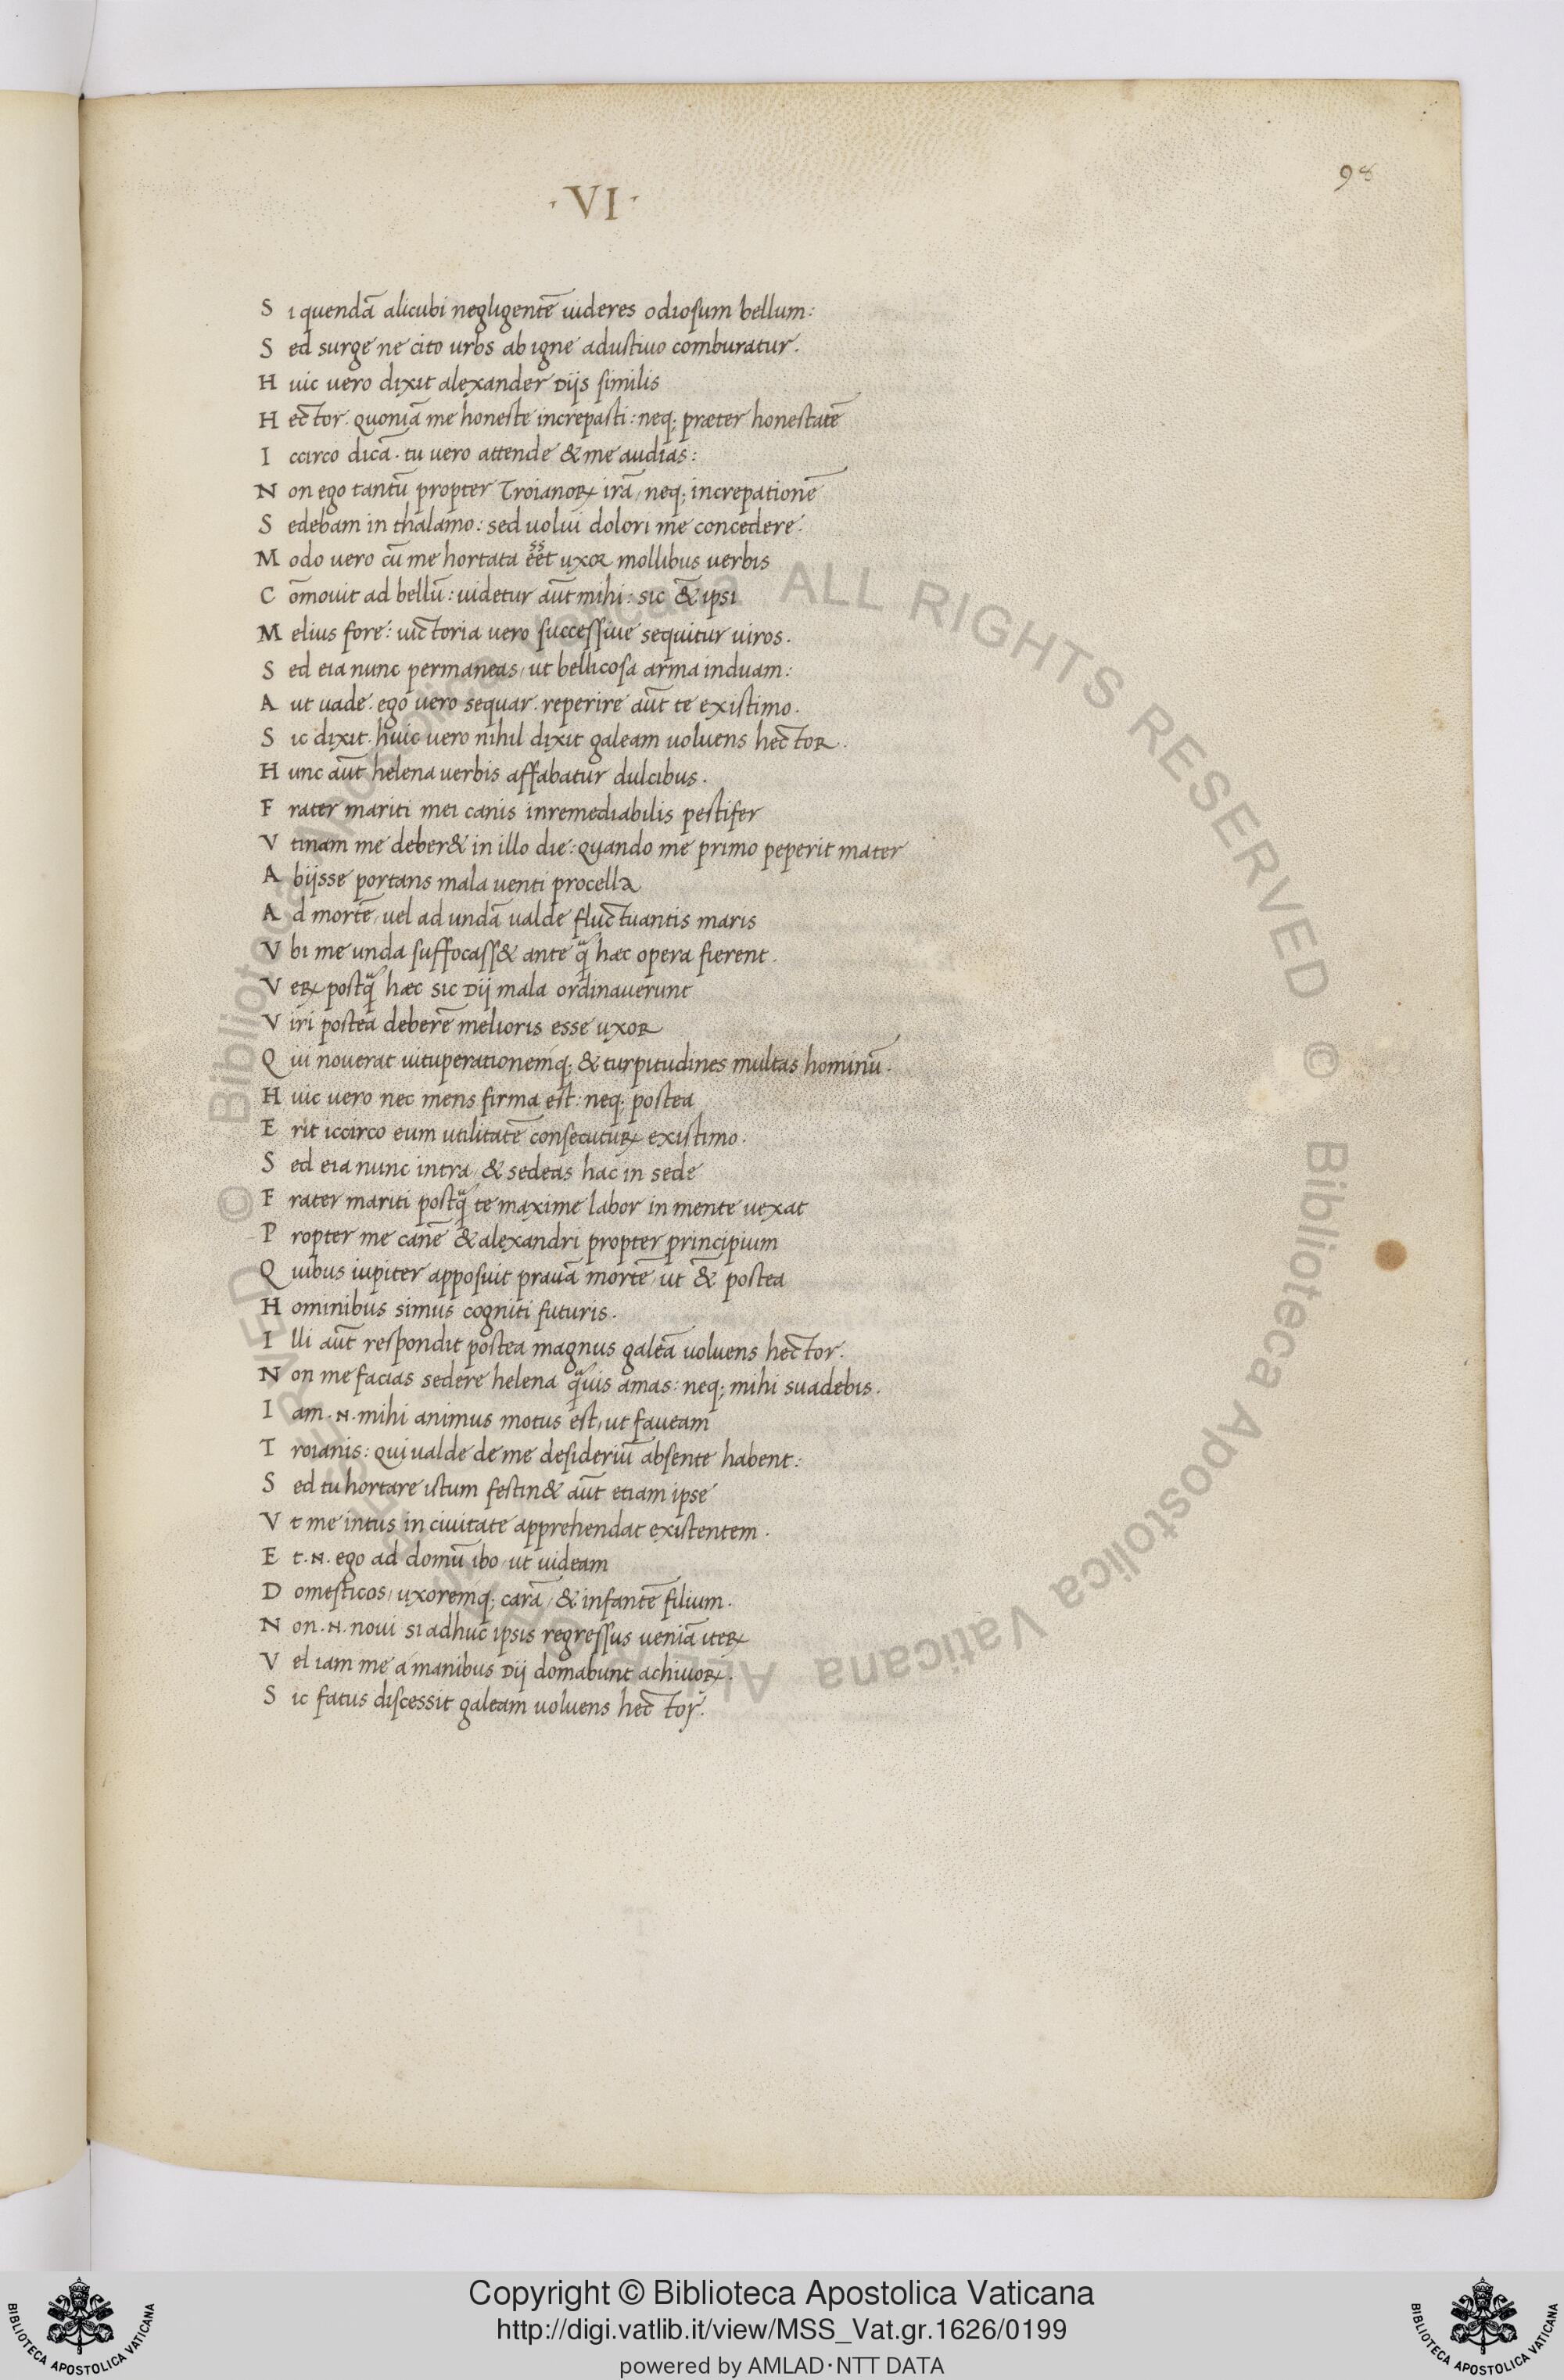 98
· VI ·
Si quendā alicubi negligentē uideres odiosum bellum:
Sed surge ne cito urbs ab igne adustiuo comburatur.
Huic uero dixit alexander Dijs similis
Hector. quoniā me honeste increpasti: neq; præter honestatē
Iccirco dicā. tu uero attende & me audias:
Non ego tantū propter Troianoꝝ irā, neq; increpationē
Sedebam in thalamo: sed uolui dolori me concedere.
Modo uero cū me hortata eēt uxor mollibus uerbis
Cōmouit ad bellū: uidetur aūt mihi: sic & ipsi
Melius fore: uictoria uero successiue sequitur uiros.
Sed eia nunc permaneas, ut bellicosa arma induam:
Aut uade. ego uero sequar. reperire aūt te existimo.
Sic dixit. huic uero nihil dixit galeam uoluens hector.
Hunc aūt helena uerbis affabatur dulcibus.
Frater mariti mei canis inremediabilis pestifer
Vtinam me deber& in illo die: quando me primo peperit mater
Abijsse portans mala uenti procella
Ad mortē, uel ad undā ualde fluctuantis maris
Vbi me unda suffocass& ante q̄ hæc opera fierent.
Veꝝ postq̄ hæc sic Dij mala ordinauerunt
Viri postea deberē melioris esse uxor
Qui nouerat uituperationemq; & turpitudines multas hominū.
Huic uero nec mens firma est: neq. postea
Erit iccirco eum utilitatē consecutuꝝ existimo.
Sed eia nunc intra, & sedeas hac in sede
Frater mariti postq̄ te maxime labor in mente uexat
Propter me canē & alexandri propter principium
Quibus iupiter apposuit prauā mortē, ut & postea
Hominibus simus cogniti futuris.
Illi aūt respondit postea magnus galeā uoluens hector.
Non me facias sedere helena q̄uis amas: neq; mihi suadebis.
Iam .N. mihi animus motus est, ut faueam
Troianis: qui ualde de me desideriū absente habent:
Sed tu hortare istum festin& aūt etiam ipse
Vt me intus in ciuitate apprehendat existentem.
Et .N. ego ad domū ibo, ut uideam
Domesticos, uxoremq; carā, & infantē filium.
Non .N. noui si adhuc ipsis regressus ueniā iteꝝ
Vel iam me a manibus Dij domabunt achiuoꝝ.
Sic fatus discessit galeam uoluens hector.
Copyright © Biblioteca Apostolica Vaticana
http://digi.vatlib.it/view/MSS_Vat.gr.1626/0199
powered by AMLAD·NTT DATA
BIBLIOTECA APOSTOLICA VATICANA
BIBLIOTECA APOSTOLICA VATICANA
© Biblioteca Apostolica Vaticana ALL RIGHTS RESERVED © Biblioteca Apostolica Vaticana ALL RIGHTS RESERVED